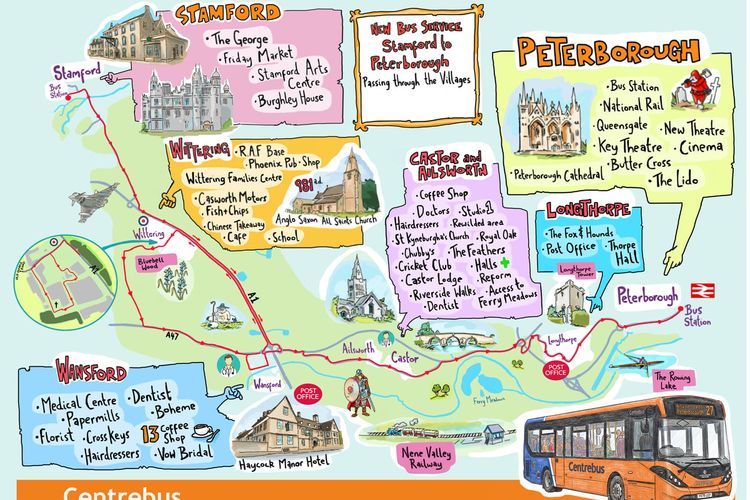 STAMFORD
• The George
• Friday Market
• Stamford Arts
Centre
• Burghley House
Stamford
Bus
Station
NEW BUS SERVICE
STAMFORD TO
PETERBOROUGH
PASSING THROUGH THE VILLAGES
PETERBOROUGH
• Bus Station
• National Rail
Queensgate
• New Theatre
Key Theatre
• Cinema
• Butter Cross
• The Lido
• Peterborough Cathedral
WITTERING
• R.A.F Base
• Phoenix Pub • Shop
Wittering Families Centre
• Casworth Motors
• Fish+Chips
• Chinese Takeaway
• Cafe
• School
981 ad.
Anglo Saxon All Saints Church
CASTOR AND
AILSWORTH
• Coffee Shop
• Doctors • Studio2
Hairdressers • Rewilded area
St Kyneburgha's Church • Royal Oak
• Chubby's • The Feathers
Cricket Club • Halls
• Castor Lodge • Reform
• Riverside Walks • Access to
• Dentist Ferry Meadows
LONGTHORPE
• The Fox & Hounds
• Post Office • Thorpe
Hall
Longthorpe
Tower
Peterborough
Bus
Station
Wittering
Bluebell
Wood
A1
A1
A47
Ailsworth
Castor
Longthorpe
Wansford
POST
OFFICE
POST
OFFICE
Ferry Meadows
The Rowing
Lake
WANSFORD
• Medical Centre
• Dentist
• Papermills
• Boheme
• Florist
• Cross Keys
13 Coffee
Shop
• Hairdressers
• Vow Bridal
Haycock Manor Hotel
Nene Valley
Railway
27
Centrebus
Centrebus